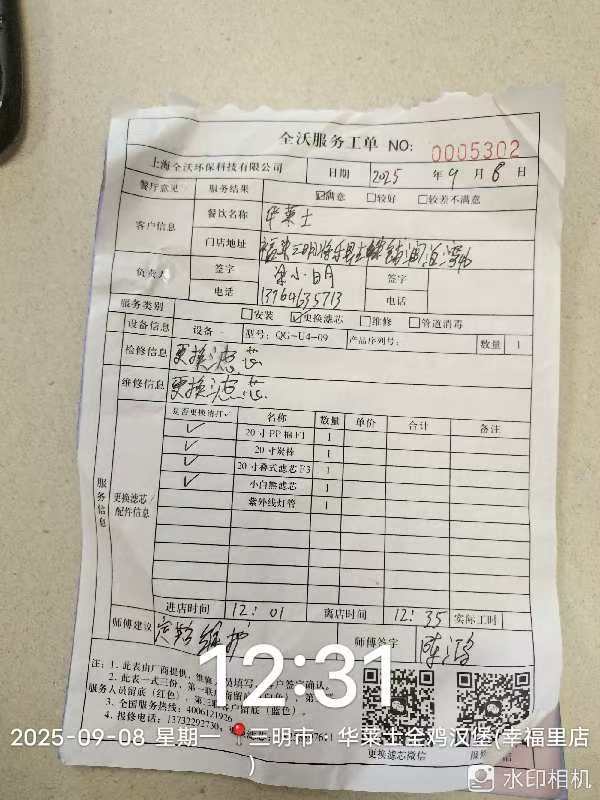 全沃服务工单 NO: 0005302
上海全沃环保科技有限公司 日期 2025 年 9 月 8 日
餐厅意见 服务结果 ☑满意 □较好 □较差不满意
客户信息 餐饮名称 华莱士
门店地址
负责人 签字 签字
电话 13764635713 电话
服务类别 □安装 ☑更换滤芯 □维修 □管道消毒
设备信息 设备 型号: QG-U4-09 产品序列号: 数量 1
检修信息 更换滤芯
维修信息 更换滤芯
服务信息
更换滤芯/配件信息
是否更换请打✓ 名称 数量 单价 合计 备注
✓ 20寸PP棉F1 1
✓ 20寸炭棒 1
✓ 20寸 式滤芯F3 1
✓ 小白熊滤芯 1
紫外线灯管 1
进店时间 12:01 离店时间 12:35 实际工时
师傅建议 定期维护 师傅签字 陈
注: 1. 此表由厂商提供, 维修 员填写, 客户签字确认。
2. 此表一式三份, 第一联
服务人员留底(红色), 第三联客户留底(蓝色)。
3. 全国服务热线: 4006121926
4. 报修电话: 13732292730
更换滤芯微信
12:31
2025-09-08 星期一 明市·华莱士全鸡汉堡(幸福里店)
水印相机